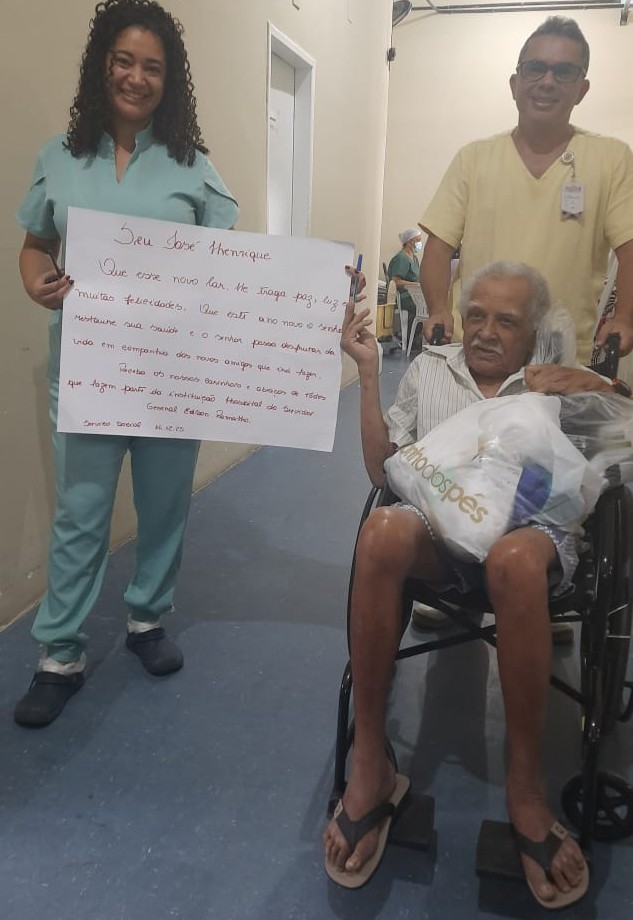 Seu José Henrique
Que esse novo lar, lhe traga paz, luz e
muitas felicidades. Que este ano novo o senhor
restaure sua saúde e o senhor possa desfrutar da
vida em companhia dos novos amigos que irá fazer.
Receba os nossos carinhos e abraços de todos
que fazem parte da instituição Hospital do Servidor
General Edson Ramalho.
Serviço Social 16.12.25
nhodospés